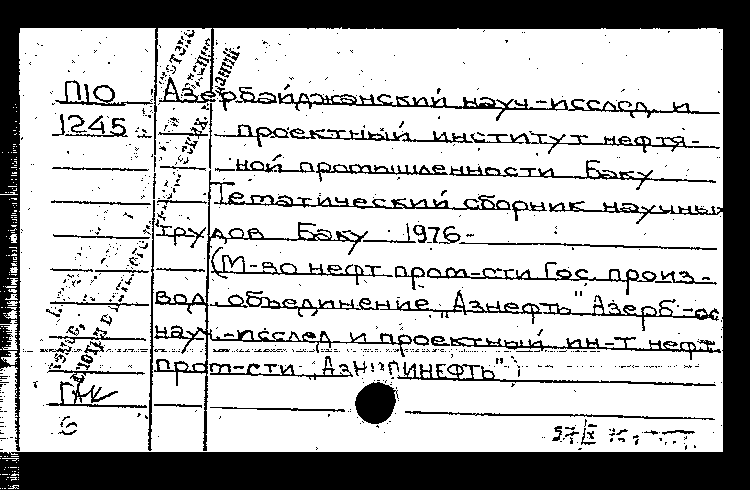 П10 Азербайджанский науч-исслед. и
1245 проектный институт нефтя-
ной промышленности Баку
Тематический сборник научных
трудов Баку 1976-
(М-во нефт пром-сти Гос. произ-
вод. объединение „Азнефть" Азерб-ос
науч.-исслед и проектный ин-т нефт.
пром-сти „АзНИПИНЕФТЬ")
ГАК
6